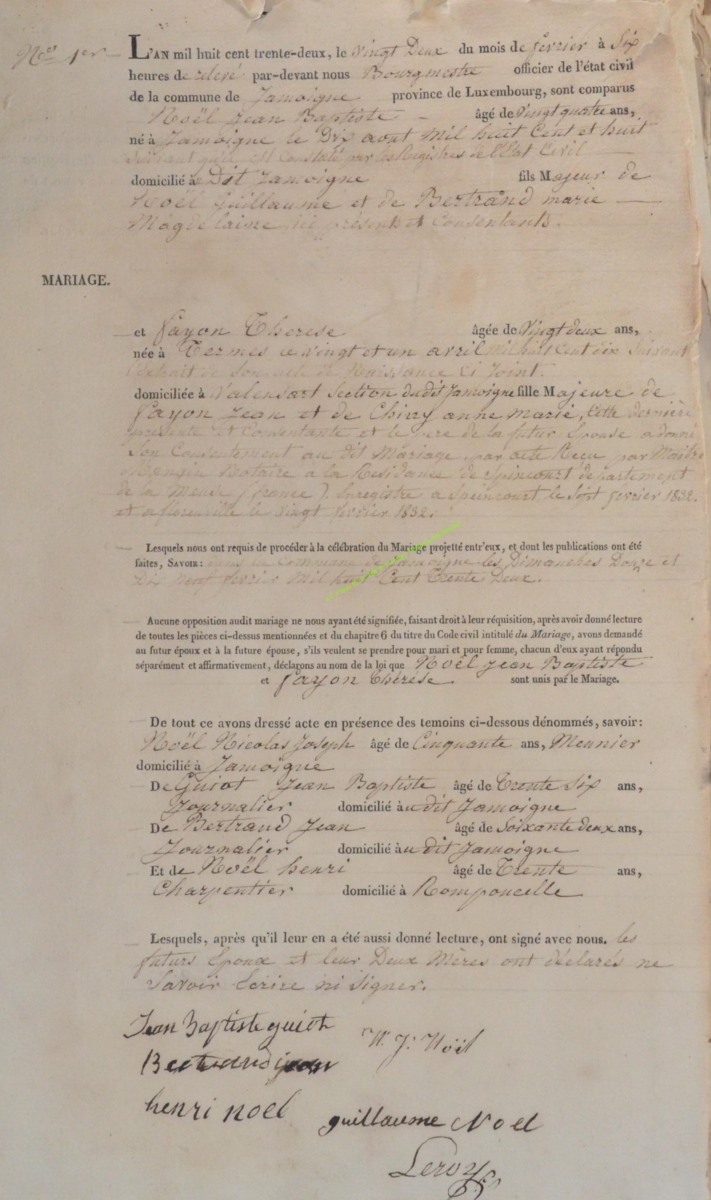 Nos 1er
L'AN mil huit cent trente-deux, le vingt Deux du mois de fevrier à Six
heures de relevé par-devant nous Bourgmestre officier de l'état civil
de la commune de Jamoigne province de Luxembourg, sont comparus
Noël Jean Baptiste âgé de Vingt quatre ans,
né à Jamoigne le Dix aout Mil huit Cent et huit
Suivant qu'il est Constaté par les Registres de l'Etat Civil
domicilié à Dit Jamoigne fils Majeur de
Noël Guillaume et de Bertrand marie
Magdelaine ici présents et Consentants.
MARIAGE.
et fayon Therese âgée de Vingt deux ans,
née à Termes le vingt et un avril Mil huit Cent dix Suivant
l'extrait de Son acte de Naissance Ci Joint
domiciliée à Valensart Section du dit Jamoigne fille Majeure de
fayon Jean et de Chiny anne marie, Cette dernière
présente et Consentante et le pere de la futur Epouse a donné
Son Consentement au dit Mariage par acte Reçu par Maître
Notaire à la Résidance de Spincourt département
de la Meuse (france). Enregistré a Speincourt le Sept fevrier 1832.
et a florenville le Vingt fevrier 1832.
Lesquels nous ont requis de procéder à la célébration du Mariage projetté entr'eux, et dont les publications ont été
faites, SAVOIR: dans la Commune de Jamoigne les Dimanches Douze et
Dix Neuf fevrier Mil huit Cent Trente Deux.
Aucune opposition audit mariage ne nous ayant été signifiée, faisant droit à leur réquisition, après avoir donné lecture
de toutes les pièces ci-dessus mentionnées et du chapitre 6 du titre du Code civil intitulé du Mariage, avons demandé
au futur époux et à la future épouse, s'ils veulent se prendre pour mari et pour femme, chacun d'eux ayant répondu
séparément et affirmativement, déclarons au nom de la loi que Noël Jean Baptiste
et fayon Thérèse sont unis par le Mariage.
De tout ce avons dressé acte en présence des temoins ci-dessous dénommés, savoir:
Noël Nicolas Joseph âgé de Cinquante ans, Meunier
domicilié à Jamoigne
De Guiot Jean Baptiste âgé de Trente Six ans,
Journalier domicilié à u dit Jamoigne
De Bertrand Jean âgé de Soixante deux ans,
Journalier domicilié à u dit Jamoigne
Et de Noël henri âgé de Trente ans,
Charpentier domicilié à Romponcelle
Lesquels, après qu'il leur en a été aussi donné lecture, ont signé avec nous. les
futurs Epoux et leur Deux Mères ont déclarés ne
Savoir Ecrire ni Signer.
Jean Baptiste guioth
N. J. Noël
Bertrand jean
henri noel
guillaume Noel
Leroy